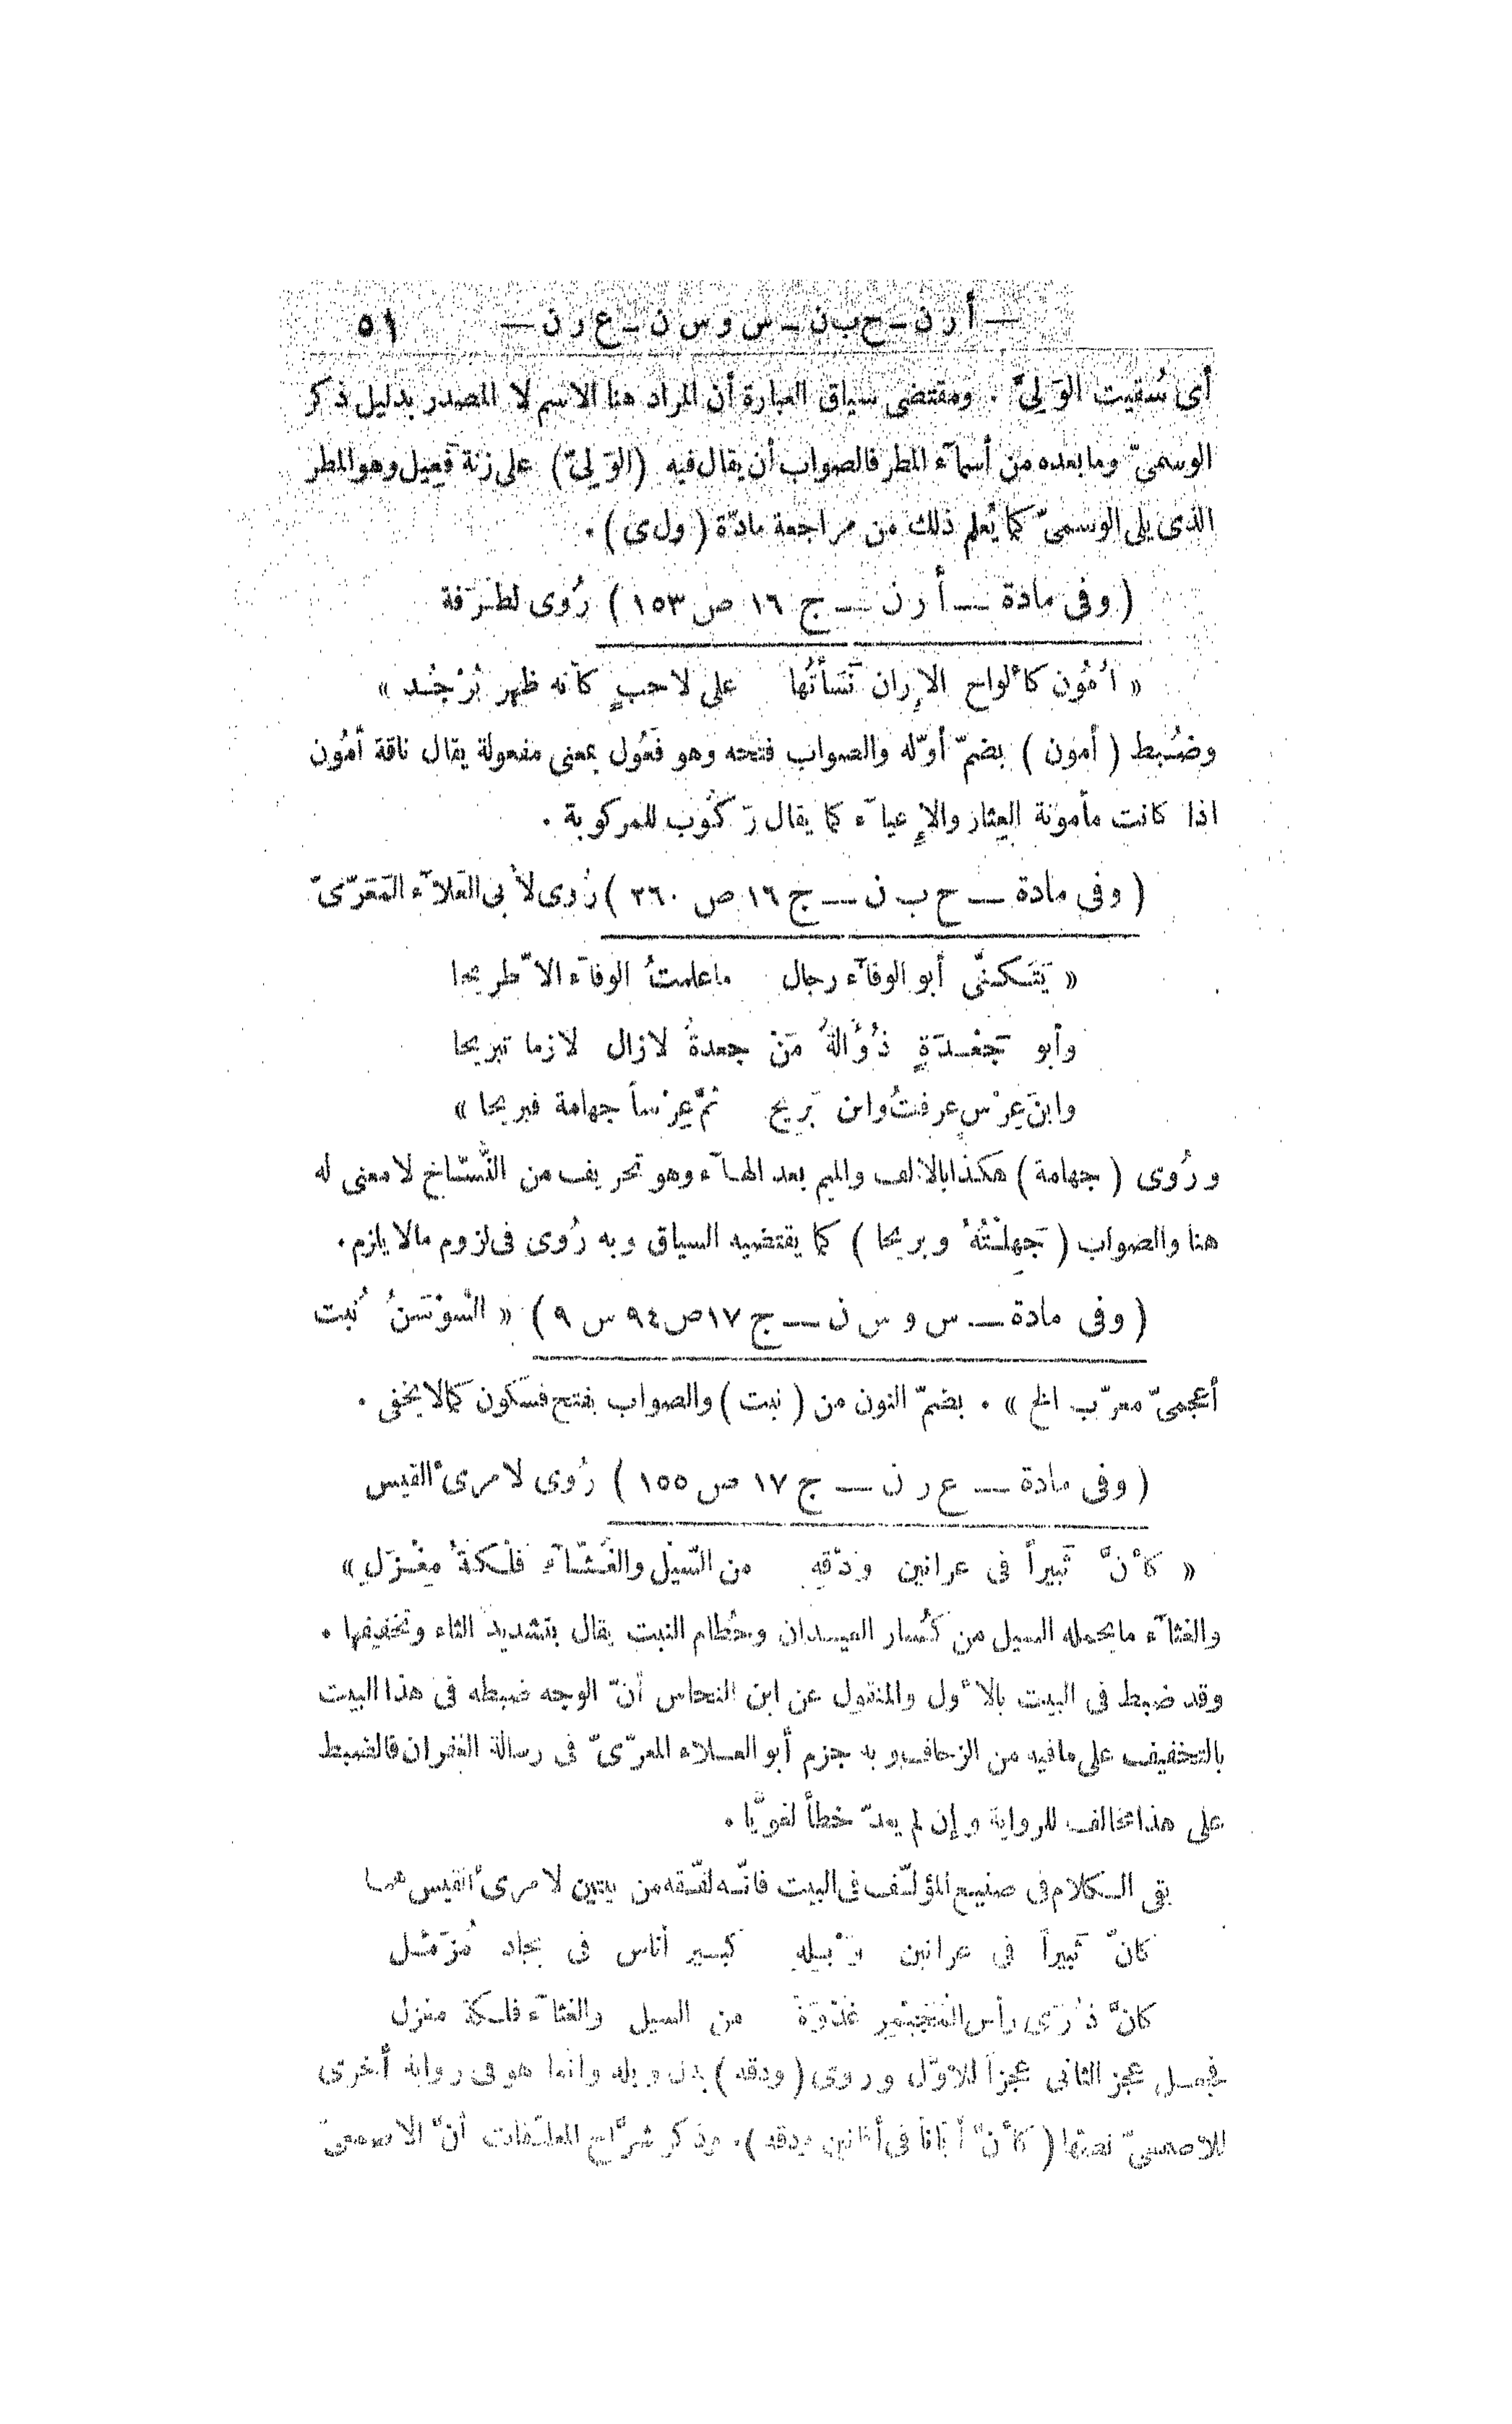 — أ ر ن – ح ب ن – س و س ن – ع ر ن — ٥١
أى سُقيت الوَلِىَّ . ومقتضى سياق العبارة أن المراد هنا الاسم لا المصدر بدليل ذكر
الوسمىّ وما بعده من أسمآء المطر فالصواب أن يقال فيه (الوَلِىّ) على زنة فَعِيل وهو المطر
الذى يلى الوسمىّ كما يُعلم ذلك من مراجعة مادّة ( ول ى ) .
( وفى مادة — أ ر ن — ج ١٦ ص ١٥٣ ) رُوى لطَرَفة
« أُمُون كأَلواح الإِران نَسَأْتُها على لاحبٍ كأنه ظهر بُرْجُد »
وضُبط ( أمون ) بضمّ أوّله والصواب فتحه وهو فَعُول بمعنى مفعولة يقال ناقة أَمُون
اذا كانت مأمونة العِثار والإِعيآء كما يقال رَكُوب للمركوبة .
( وفى مادة — ح ب ن — ج ١٦ ص ٢٦٠ ) رُوى لأَبى العَلآء المَعَرّىّ
« يَتَكنّى أبو الوفآء رجال ماعلمتُ الوفآء الاّ طريحا
وأبو جَعْدَةٍ ذُؤَالةُ مَنْ جعدةُ لازال لازما تبريحا
وابنَ عِرْسٍ عرفتُ وابن بَرِيح ثمّ عِرْساً جهامة فبريحا »
ورُوى ( جهامة ) هكذا بالألف والميم بعد الهآء وهو تحريف من النُّسّاخ لا معنى له
هنا والصواب ( جَهِلْتُهُ وبريحا ) كما يقتضيه السياق وبه رُوى فى لزوم مالا يلزم .
( وفى مادة — س و س ن — ج ١٧ ص ٩٤ س ٩ ) « السَّوْسَنُ نُبت
أعجمىّ معرّب الخ » . بضمّ النون من ( نبت ) والصواب بفتح فسكون كمالا يخفى .
( وفى مادة — ع ر ن — ج ١٧ ص ١٥٥ ) رُوى لامرئ القيس
« كأَنَّ ثَبيراً فى عرانين وَدْقِهِ من السَّيْل والغُثّآءِ فلْكةُ مِغْزَلِ »
والغثآء ما يحمله السيل من كُسار العيدان وحُطام النبت يقال بتشديد الثاء وتخفيفها .
وقد ضبط فى البيت بالأَول والمنقول عن ابن النحاس أنّ الوجه ضبطه فى هذا البيت
بالتخفيف على مافيه من الزحاف وبه جزم أبو العلاء المعرّىّ فى رسالة الغفران فالضبط
على هذا مخالف للرواية وإن لم يعدّ خطأً لغويًّا .
بقى الكلام فى صنيع المؤلّف فى البيت فانّه لفّقه من بيتين لامرئ القيس هما
كأنّ ثَبيراً فى عرانين وَبْلِهِ كبير أناس فى بجاد مُزَمَّل
كأنَّ ذُرَى رأس المُجَيْمِرِ غُدْوَةً من السيل والغثآء فلكة مغزل
فجعل عجز الثانى عجزاً للأوّل وروى ( ودقه ) بدل وبله وانما هو فى رواية أخرى
للأصمعىّ نصّها ( كأَنَّ أَبَاناً فى أفانين ودقه ) . وذكر شرّاح المعلّقات أنّ الأصمعىّ